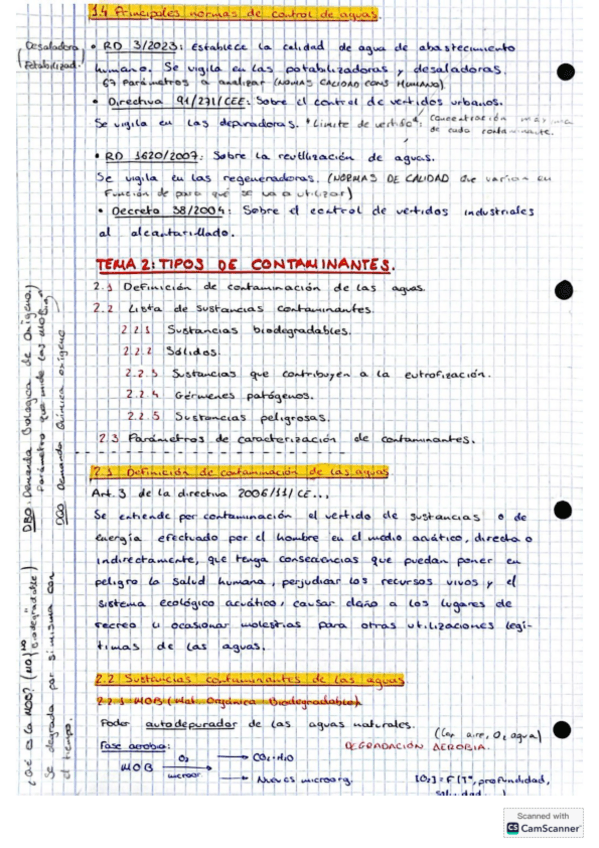 1.4 Principales normas de control de aguas.
Desaladora
Potabilizad.
• RD 3/2023: Establece la calidad de agua de abastecimiento
humano. Se vigila en las potabilizadoras y desaladoras.
67 Parámetros a analizar (NORMAS CALIDAD CONS HUMANO)
• Directiva 91/271/CEE: Sobre el control de vertidos urbanos.
Se vigila en las depuradoras. "Límite de vertido": Concentración máxima
de cada contaminante.
• RD 1620/2007: Sobre la reutilización de aguas.
Se vigila en las regeneradoras. (NORMAS DE CALIDAD que varían en
función de para qué se va a utilizar)
• Decreto 58/2004: Sobre el control de vertidos industriales
al alcantarillado.
TEMA 2: TIPOS DE CONTAMINANTES.
2.1 Definición de contaminación de las aguas.
2.2 Lista de sustancias contaminantes.
2.2.1 Sustancias biodegradables.
2.2.2 Sólidos.
2.2.3 Sustancias que contribuyen a la eutrofización.
2.2.4 Gérmenes patógenos.
2.2.5 Sustancias peligrosas.
2.3 Parámetros de caracterización de contaminantes.
DBO: Demanda Biológica de Oxígeno,
Parámetro que mide las
DQO Demanda Química oxígeno
2.1 Definición de contaminación de las aguas
Art. 3 de la directiva 2006/11/CE...
Se entiende por contaminación el vertido de sustancias o de
energía efectuado por el hombre en el medio acuático, directa o
indirectamente, que tenga consecuencias que puedan poner en
peligro la salud humana, perjudicar los recursos vivos y el
sistema ecológico acuático, causar daño a los lugares de
recreo u ocasionar molestias para otras utilizaciones legí-
timas de las aguas.
¿Qué es la MOB? (MO) "no
Biodegradable")
Se degrada por si misma con
el tiempo.
2.2 Sustancias contaminantes de las aguas
2.2.1 MOB (Mat. Orgánica Biodegradable)
Poder autodepurador de las aguas naturales.
(Cap aire, O2 agua)
Fase aerobia:
DEGRADACIÓN AEROBIA.
MOB
O2
microor
CO2 + H2O
Nuevos microorg.
[O2] = F (Tª, profundidad,
Scanned with
CS CamScanner